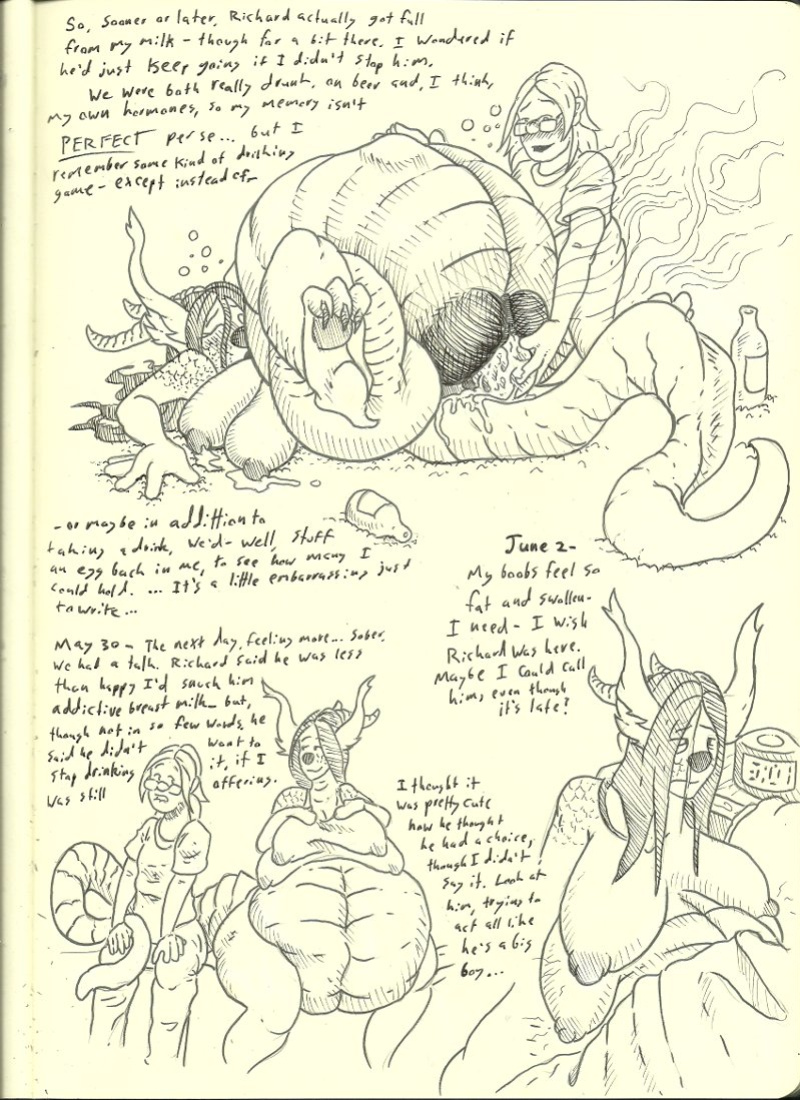 So, Sooner or later, Richard actually got full
from my milk - though for a bit there, I wondered if
he'd just keep going if I didn't stop him.
We were both really drunk, on beer and, I think,
my own hormones, so my memory isn't
PERFECT per se... but I
remember some kind of drinking
game - except instead of-
-or maybe in addittion to
taking a drink, we'd - well, stuff
an egg back in me, to see how many I
could hold. ... It's a little embarrassing just
to write...
May 30 - The next day, feeling more... sober,
we had a talk. Richard said he was less
than happy I'd snuck him
addictive breast milk - but,
though not in so few words, he
said he didn't want to
stop drinking it, if I
was still offering.
I thought it
was pretty cute
how he thought
he had a choice,
though I didn't
say it. Look at
him, trying to
act all like
he's a big
boy...
June 2-
My boobs feel so
fat and swollen-
I need - I wish
Richard was here.
Maybe I could call
him, even though
it's late?
3:01